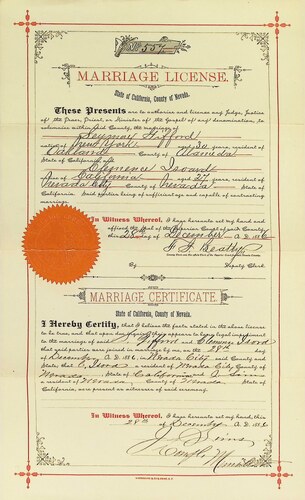 557
MARRIAGE LICENSE.
State of California, County of Nevada.
These Presents are to authorize and license any Judge, Justice
of the Peace, Priest, or Minister of the Gospel of any denomination, to
solemnize within said County, the marriage of
Seymour Gifford
native of New York aged 30 years, resident of
Oakland County of Alameda
State of California and
Clemence Isoard
native of California aged 27 years, resident of
Nevada City County of Nevada
State of California. Said parties being of sufficient age and capable of contracting
marriage.
In Witness Whereof, I have hereunto set my hand and
affixed the Seal of the Superior Court of said County
this 28th day of December A.D. 1886
By Deputy Clerk.
MARRIAGE CERTIFICATE.
State of California, County of Nevada.
I Hereby Certify, that I believe the facts stated in the above license
to be true, and that upon due inquiry there appears to be no legal impediment
to the marriage of said Gifford and Clemence Isoard
that said parties were joined in marriage by me, on the 28th day
of December, A.D. 1886, in Nevada City, said County and
State; that Isoard a resident of Nevada City County of
Nevada State of California and
a resident of Nevada, County of Nevada State of
California, are present as witnesses of said ceremony.
In Witness Whereof, I have hereunto set my hand, this
28th day of December A.D. 1886
J. Sims